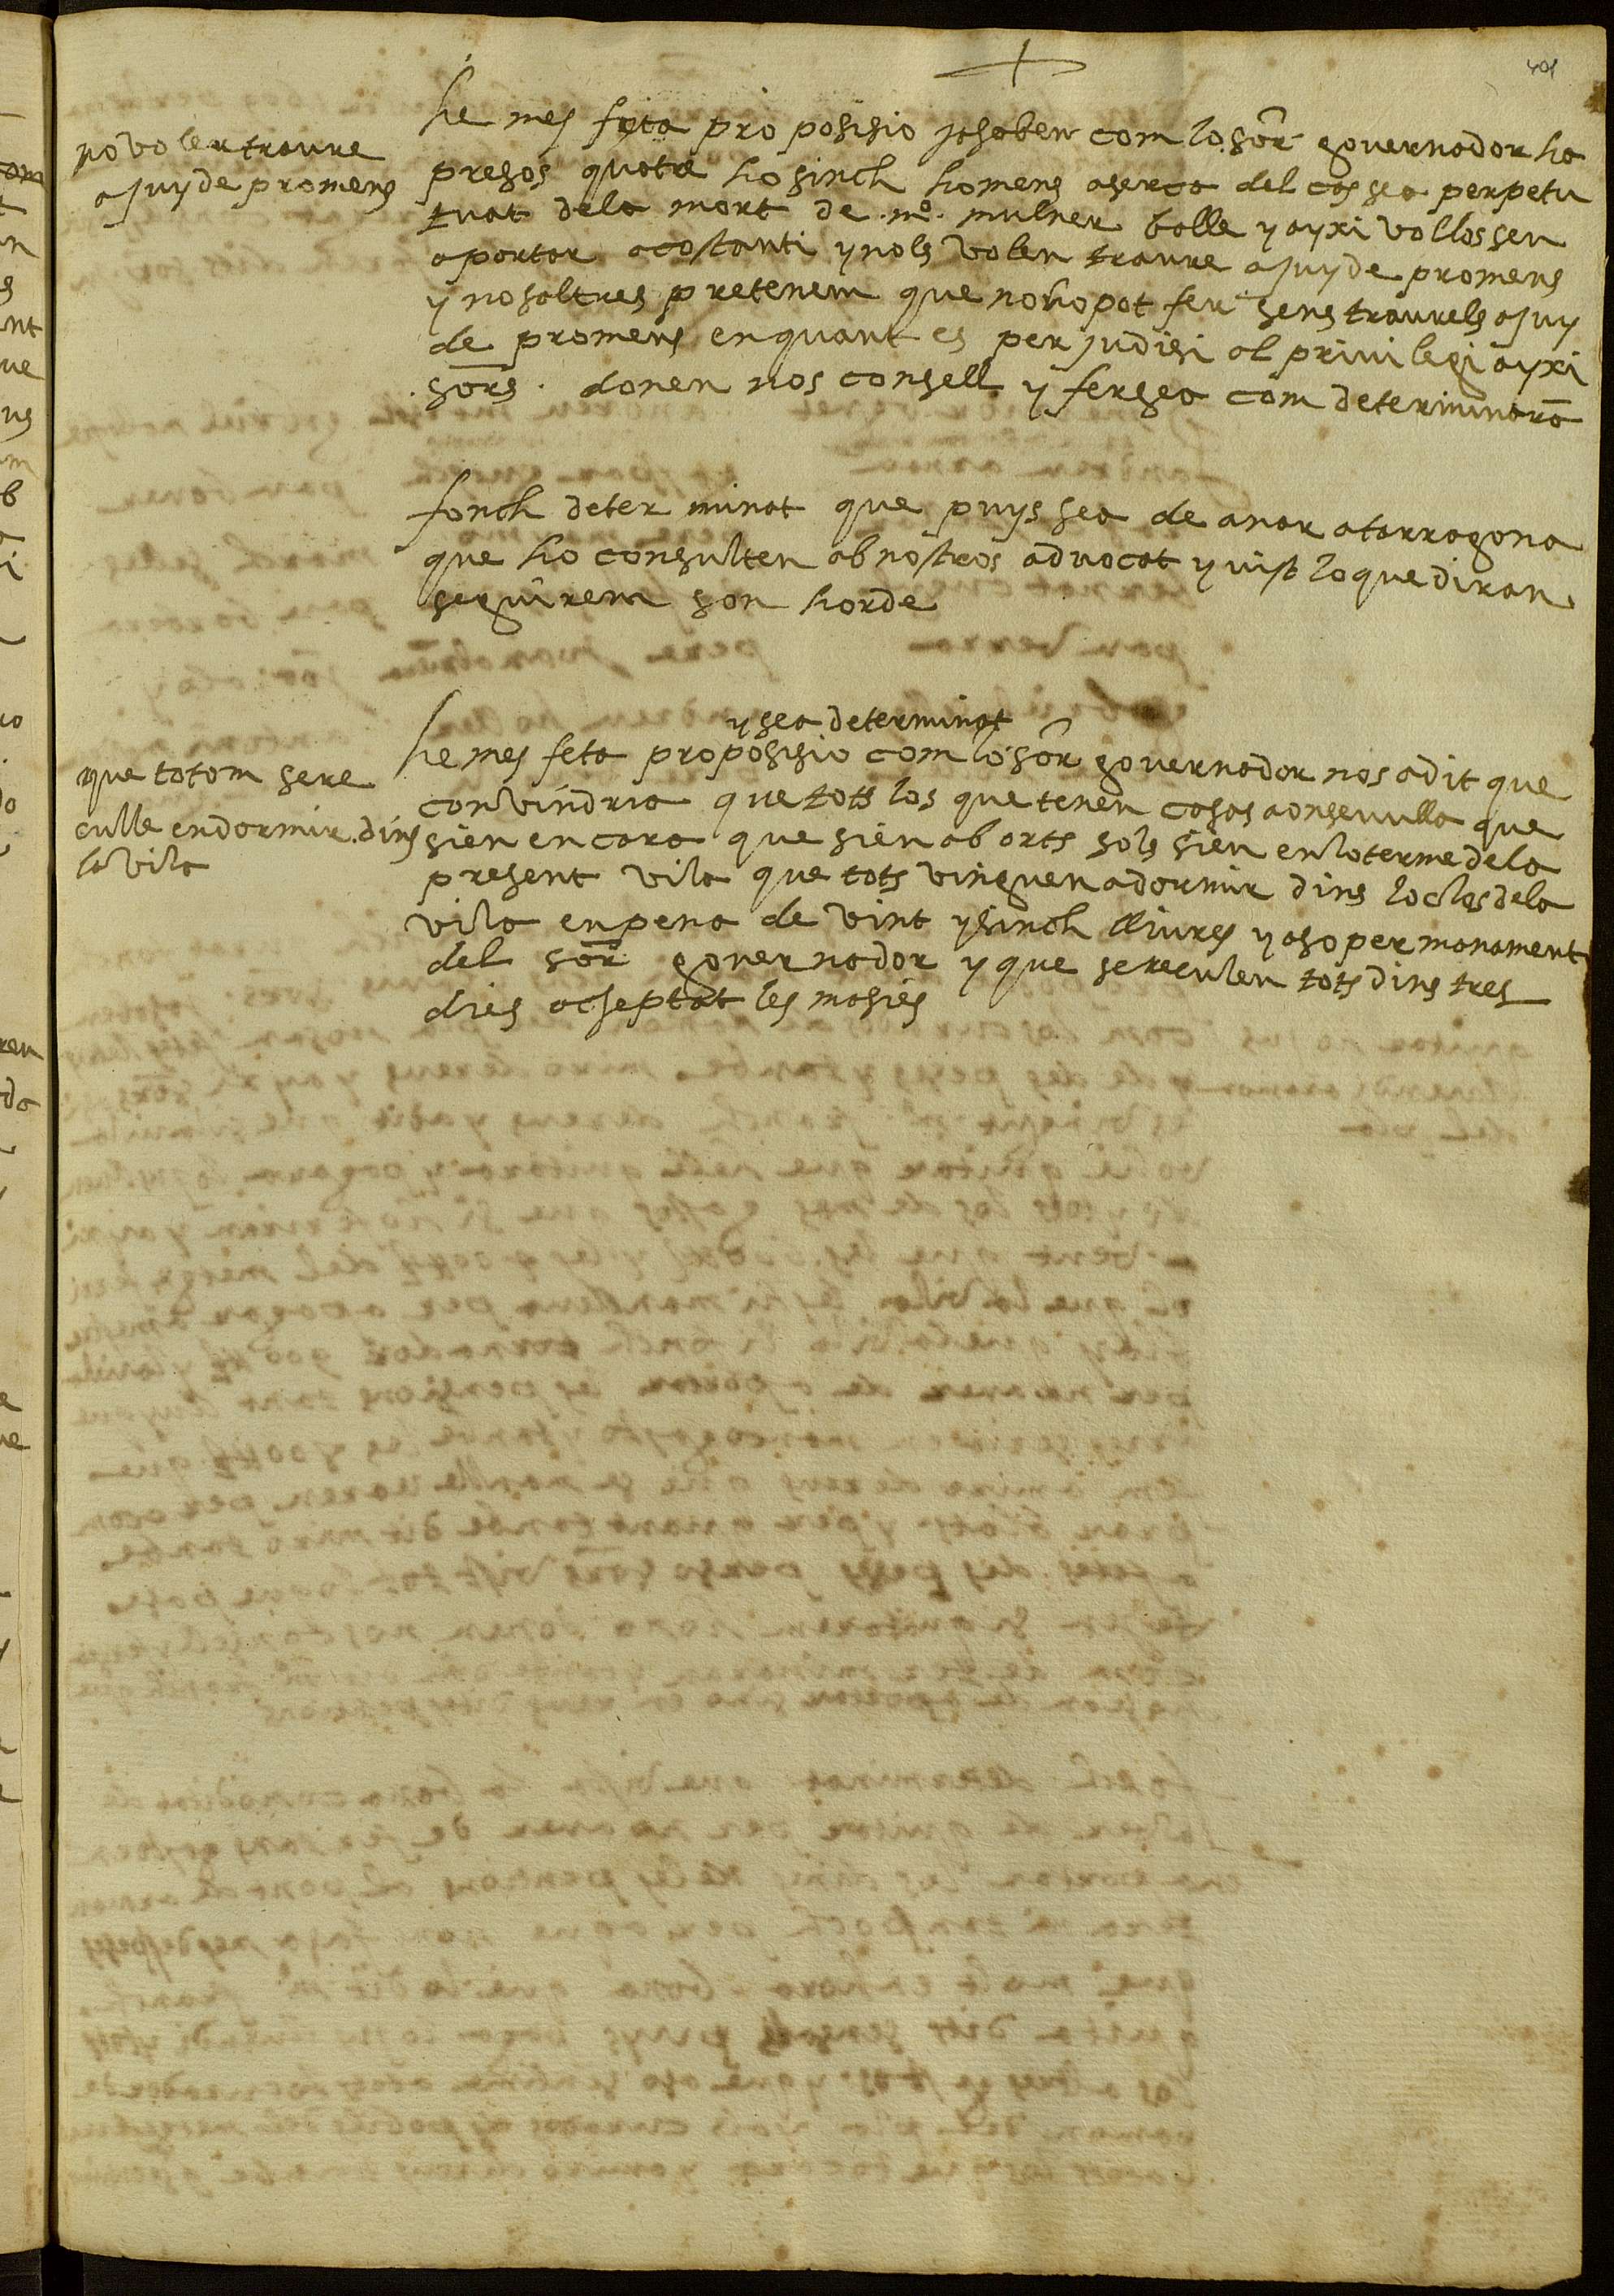 401
he mes feta proposisio ja saben com lo sor governador ha
presos quatre ho sinch homens aserca del cas sea perpetu
tuat dela mort de mo mulner balle y ayxi vollossen
aportar acostanti y nols volen traure a juy de promens
y nosaltres pretenem que noho pot fer sens traurels a juy
de promens en quant es per judisi al privilegi ayxi
sors donen nos consell y fersea com determinara
no voler traure
a juy de promens
fonch determinat que puys sea de anar a tarragona
que ho consulten ab nostros advocat y vist lo que diran
seguirem son horde
y sea determinat
he mes feta proposisio com lo sor governador nos a dit que
convindria que tots los que tenen casas a onsevulla que
sien encara que sien ab orts sols sien en lo terme dela
present vila que tots vinguen a dormir dins lo clos dela
vila en pena de vint y sinch lliures y aso per manament
del sor governador y que se reculen tots dins tres
dies acseptat les masies
que totom se re
culle en dormir dins
la vila